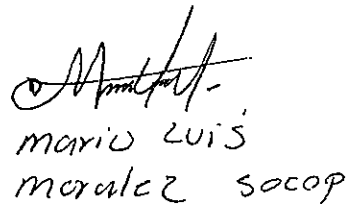 mario Luis
moralez socop